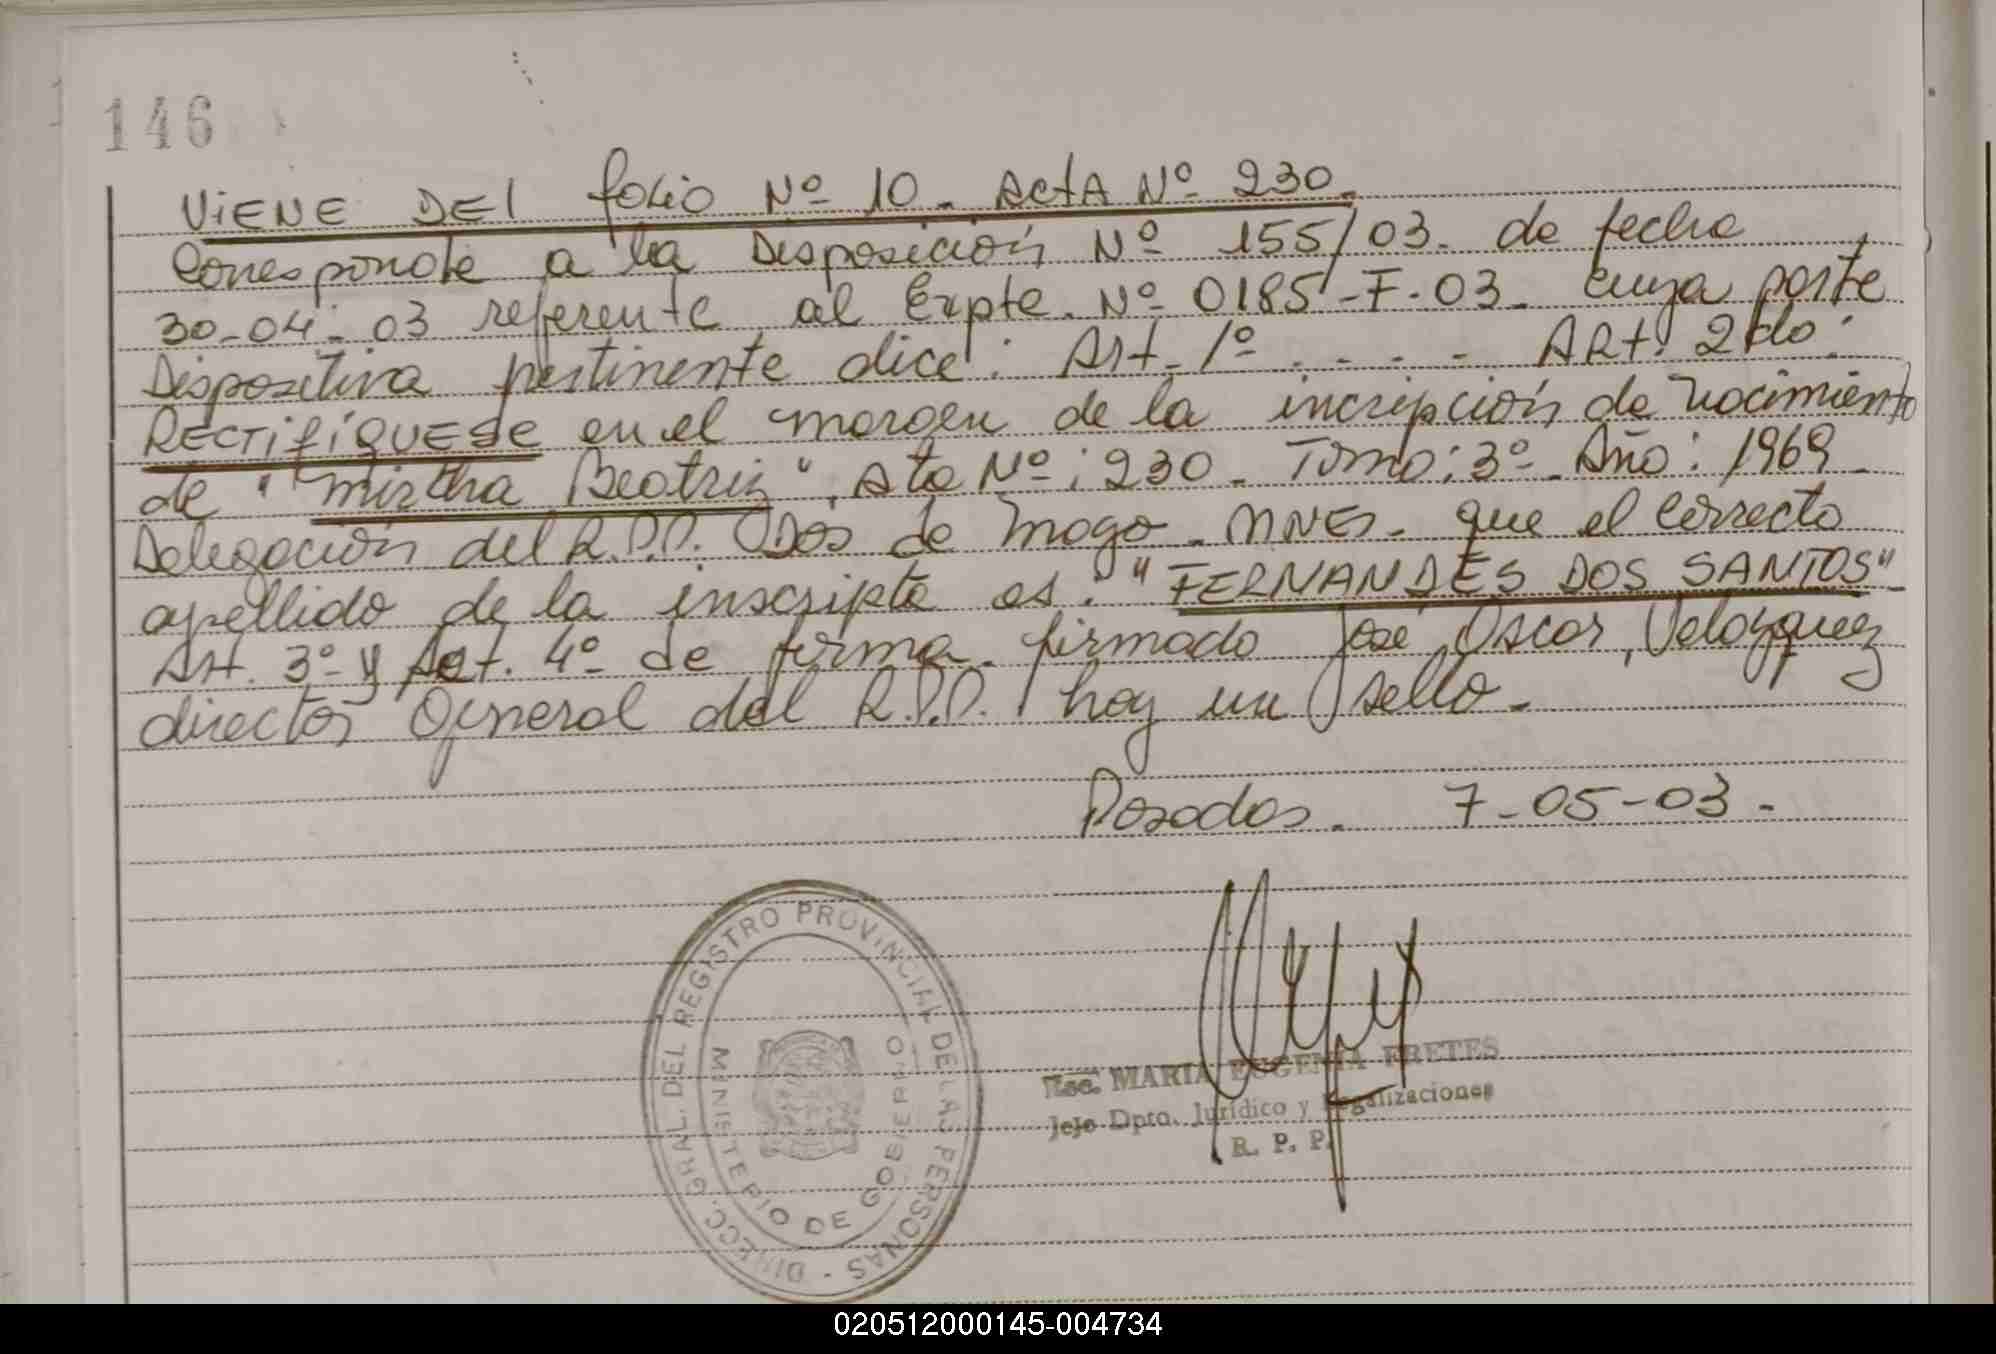 146
ViENE DEl folio Nº 10. ActA Nº 230.
Corresponde a la Disposición Nº 155/03. de fecha
30-04-03 referente al Expte. Nº 0185-F-03. cuya parte
Dispositiva pertinente dice: Art. 1º . . . . ARt. 2do:
RECTiFíQUESE en el margen de la incripción de nacimiento
de "Mirtha Beatriz", Ata Nº: 230. Tomo: 3º. Año: 1969.
Delegación del R.P.P. Dos de Mayo. MNES. que el correcto
apellido de la inscripta es: "FERNANDES DOS SANTOS"
Art. 3º y Act. 4º de forma. firmado José Oscar Velozquez
director General del R.P.P. hay un sello.
Posadas. 7-05-03.
DIRECC. GRAL. DEL REGISTRO PROVINCIAL DE LAS PERSONAS -
MINISTERIO DE GOBIERNO
Esc. MARIA EUGENIA FRETES
Jefe Dpto. Jurídico y Legalizaciones
R. P. P.
020512000145-004734